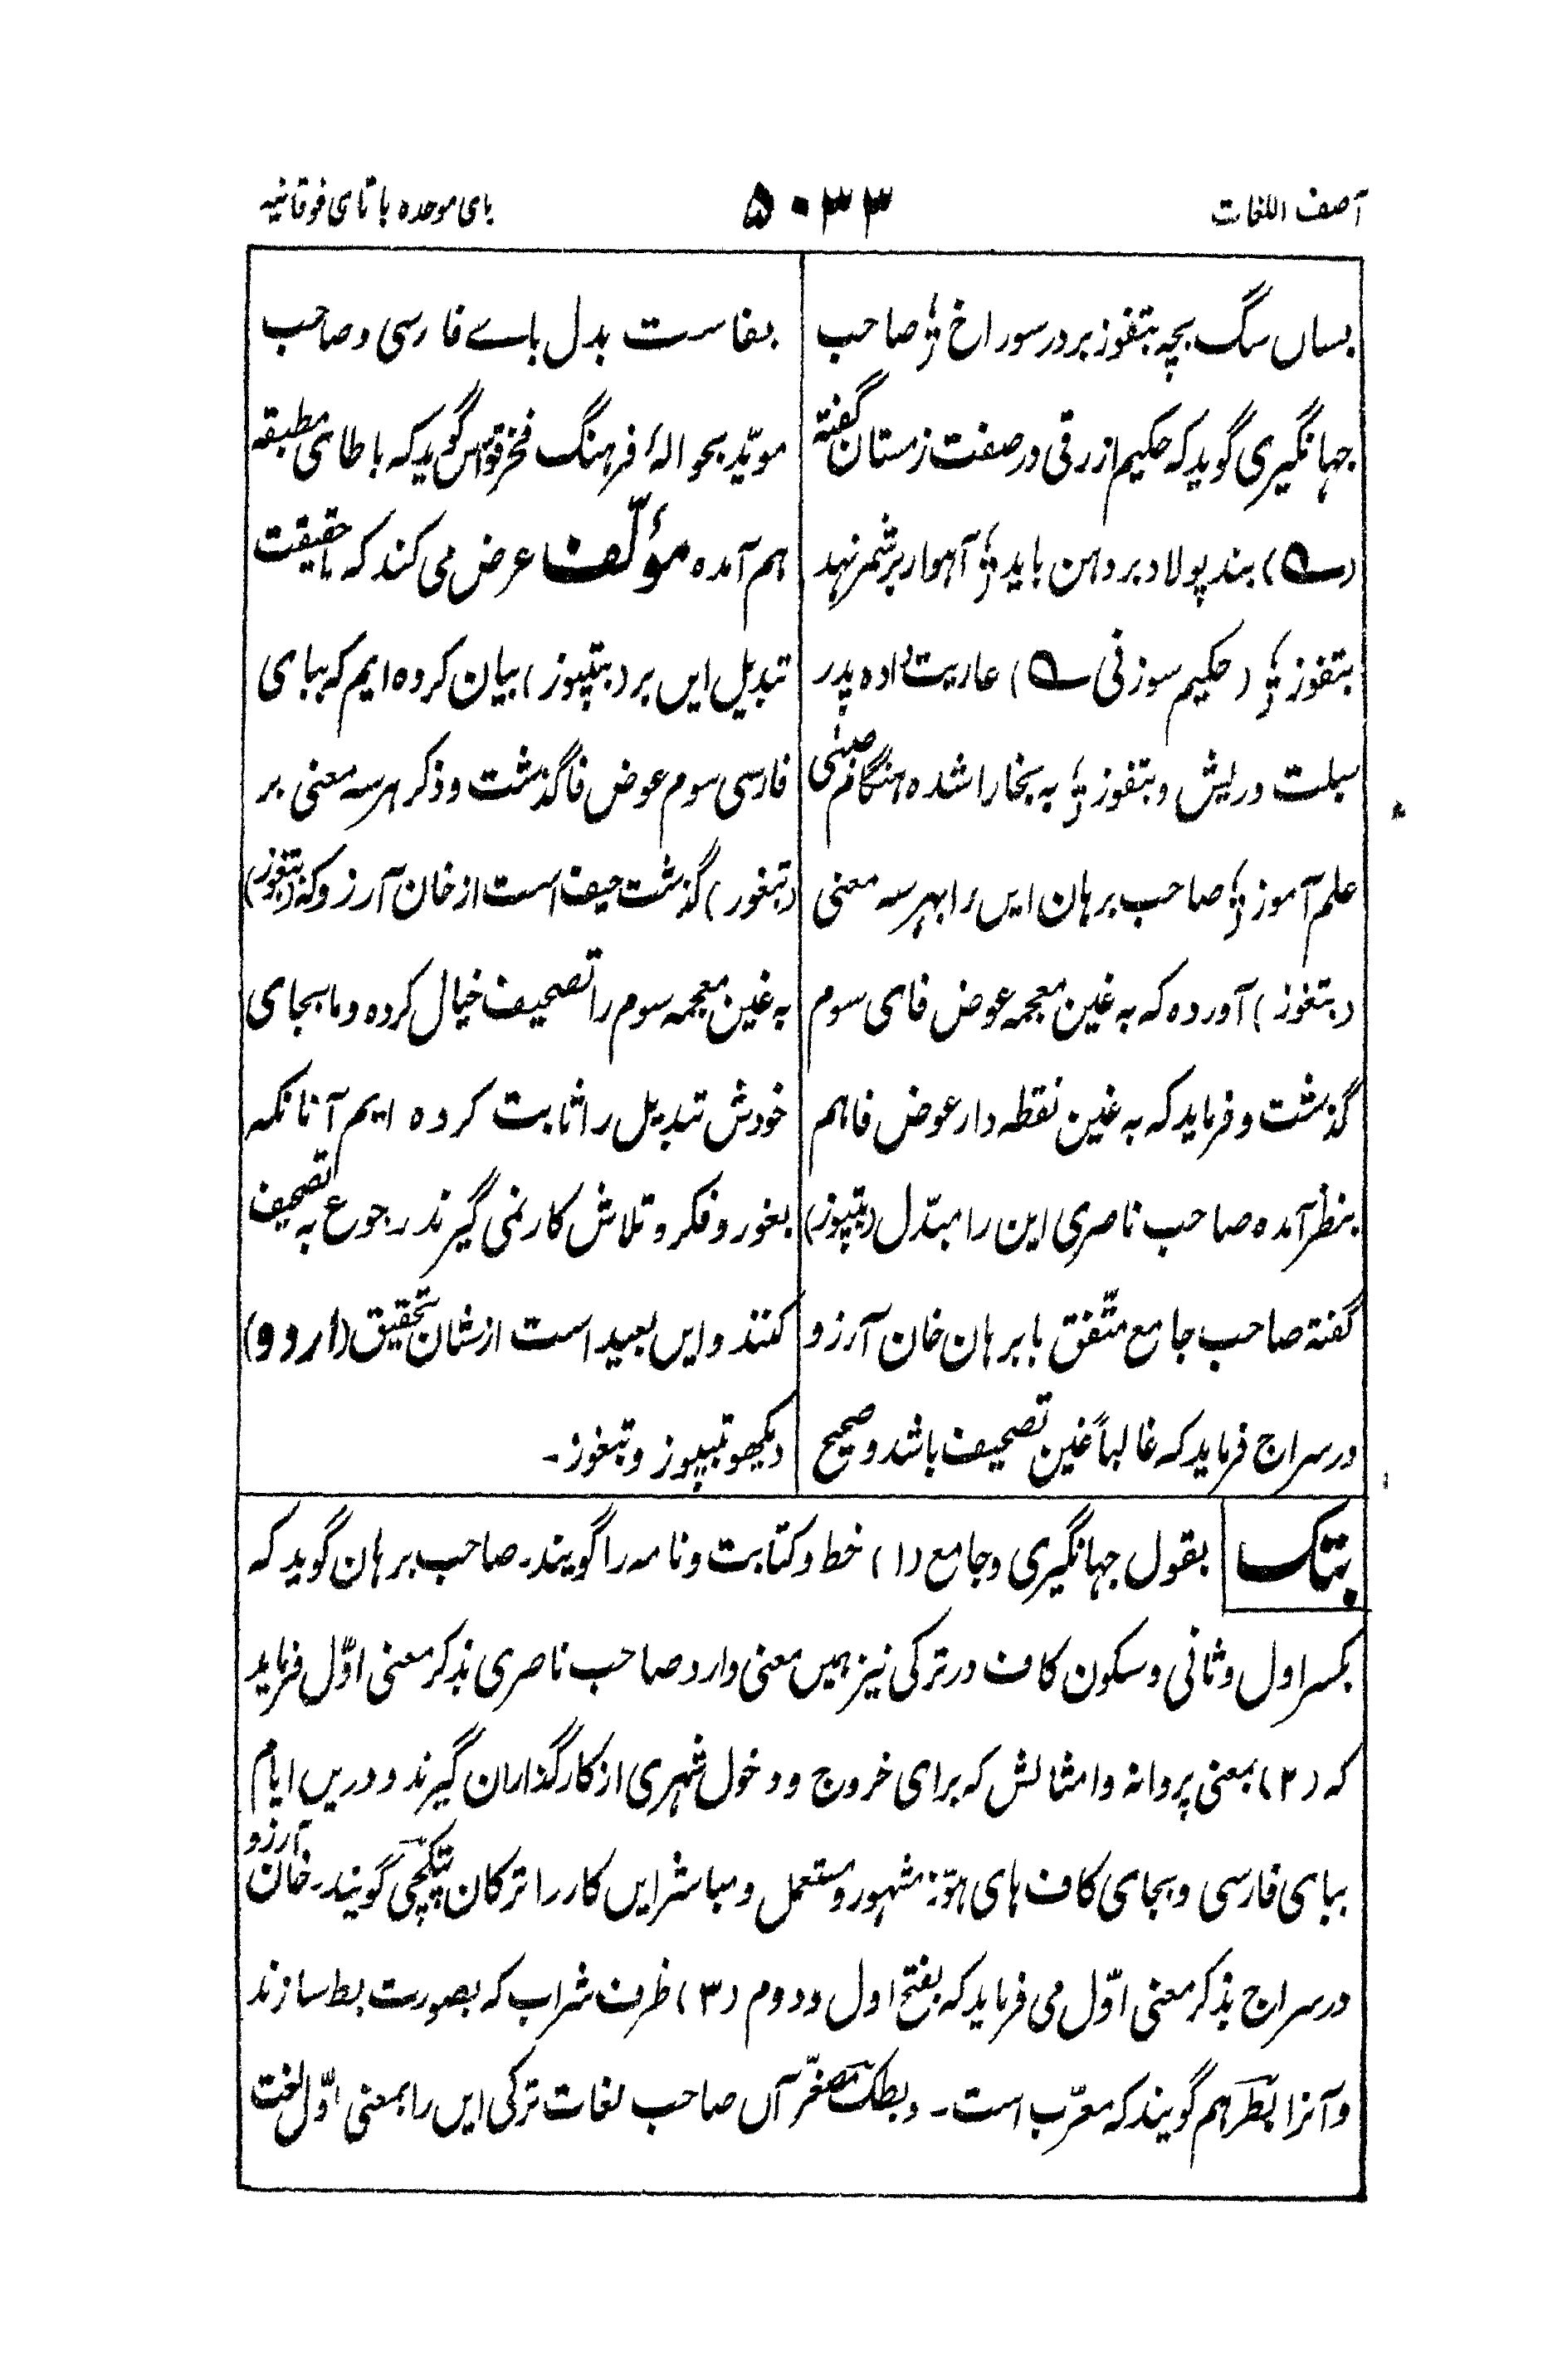 آصف اللغات
۵۰۳۳
بای موحده با تای فوقانیه
بساں سگ بچه بتفوز بر در سوراخ ؛ صاحب
جہانگیری گوید که حکیم ازرقی در صفت زمستان گفته
(ے) بند پولاد بر دهن باید ؛ آهوار بر شمر نهد
بتفوز ؛ (حکیم سوزنی ے) عاریت داده پدر
سبلت و ریش و بتفوز ؛ به بخارا شده هنگام صبئی
علم آموز ؛ صاحب برهان ایں را بهر سه معنی
(بتغوز) آورده که به غین معجمه عوض فای سوم
گذشت و فرماید که به غین نقطه دار عوض فا هم
بنظر آمده صاحب ناصری این را مبدّل (بتپوز)
گفته صاحب جامع متّفق با برهان خان آرزو
در سراج فرماید که غالباً غین تصحیف باشد و صحیح
بفاست بدل باے فارسی و صاحب
مویّد بحوالهٔ فرهنگ فخر قواس گوید که با طای مطبقه
هم آمده مؤلّف عرض می کند که ما حقیقت
تبدیل ایں بر (بتپوز) بیان کرده ایم که ببای
فارسی سوم عوض فا گذشت و ذکر هر سه معنی بر
(بتغوز) گذشت حیف است از خان آرزو که (بتغوز)
به غین معجمه سوم را تصحیف خیال کرده و ما بجای
خودش تبدیل را ثابت کرده ایم آنانکه
بغور و فکر و تلاش کار نمی گیرند رجوع به تصحیف
کنند و ایں بعید است از شان تحقیق (اردو)
دیکھو بتپوز و بتغوز۔
بتک
بقول جہانگیری و جامع (۱) خط و کتابت و نامه را گویند۔ صاحب برهان گوید که
بکسر اول و ثانی و سکون کاف در ترکی نیز همیں معنی دارد صاحب ناصری بذکر معنی اوّل فرماید
که (۲) بمعنی پروانه و امثالش که برای خروج و دخول شهری از کارگذاران گیرند و دریں ایام
ببای فارسی و بجای کاف های هوّز مشهور و مستعمل و مباشر ایں کار را ترکان پتکچی گویند۔ خان آرزو
در سراج بذکر معنی اوّل می فرماید که بفتح اول و دوم (۳) ظرف شراب که بصورت بط سازند
و آنرا بط هم گویند که معرّب است۔ و بطک مصغّر آں صاحب لغات ترکی ایں را بمعنی اوّل لغت